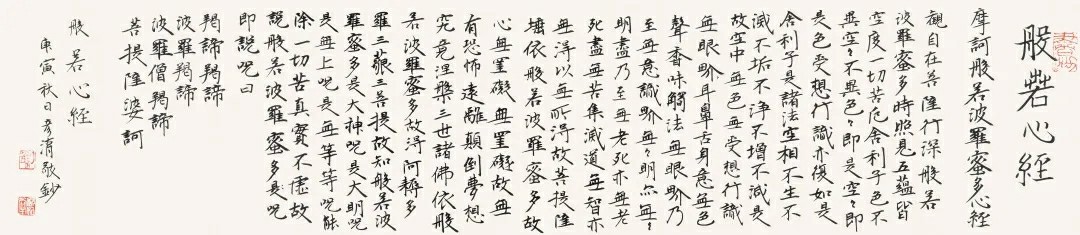 般若心經
摩訶般若波羅蜜多心經
觀自在菩薩行深般若
波羅蜜多時照見五蘊皆
空度一切苦厄舍利子色不
異空々不異色々即是空々即
是色受想行識亦復如是
舍利子是諸法空相不生不
滅不垢不淨不增不減是
故空中無色無受想行識
無眼界耳鼻舌身意無色
聲香味觸法無眼界乃
至無意識界無々明亦無々
明盡乃至無老死亦無老
死盡無苦集滅道無智亦
無得以無所得故菩提薩
埵依般若波羅蜜多故
心無罣礙無罣礙故無
有恐怖遠離顛倒夢想
究竟涅槃三世諸佛依般
若波羅蜜多故得阿耨多
羅三藐三菩提故知般若波
羅蜜多是大神呪是大明呪
是無上呪是無等等呪能
除一切苦真實不虛故
說般若波羅蜜多是呪
即說呪曰
羯諦羯諦
波羅羯諦
波羅僧羯諦
菩提薩婆訶
般若心經
庚寅秋日清敬鈔